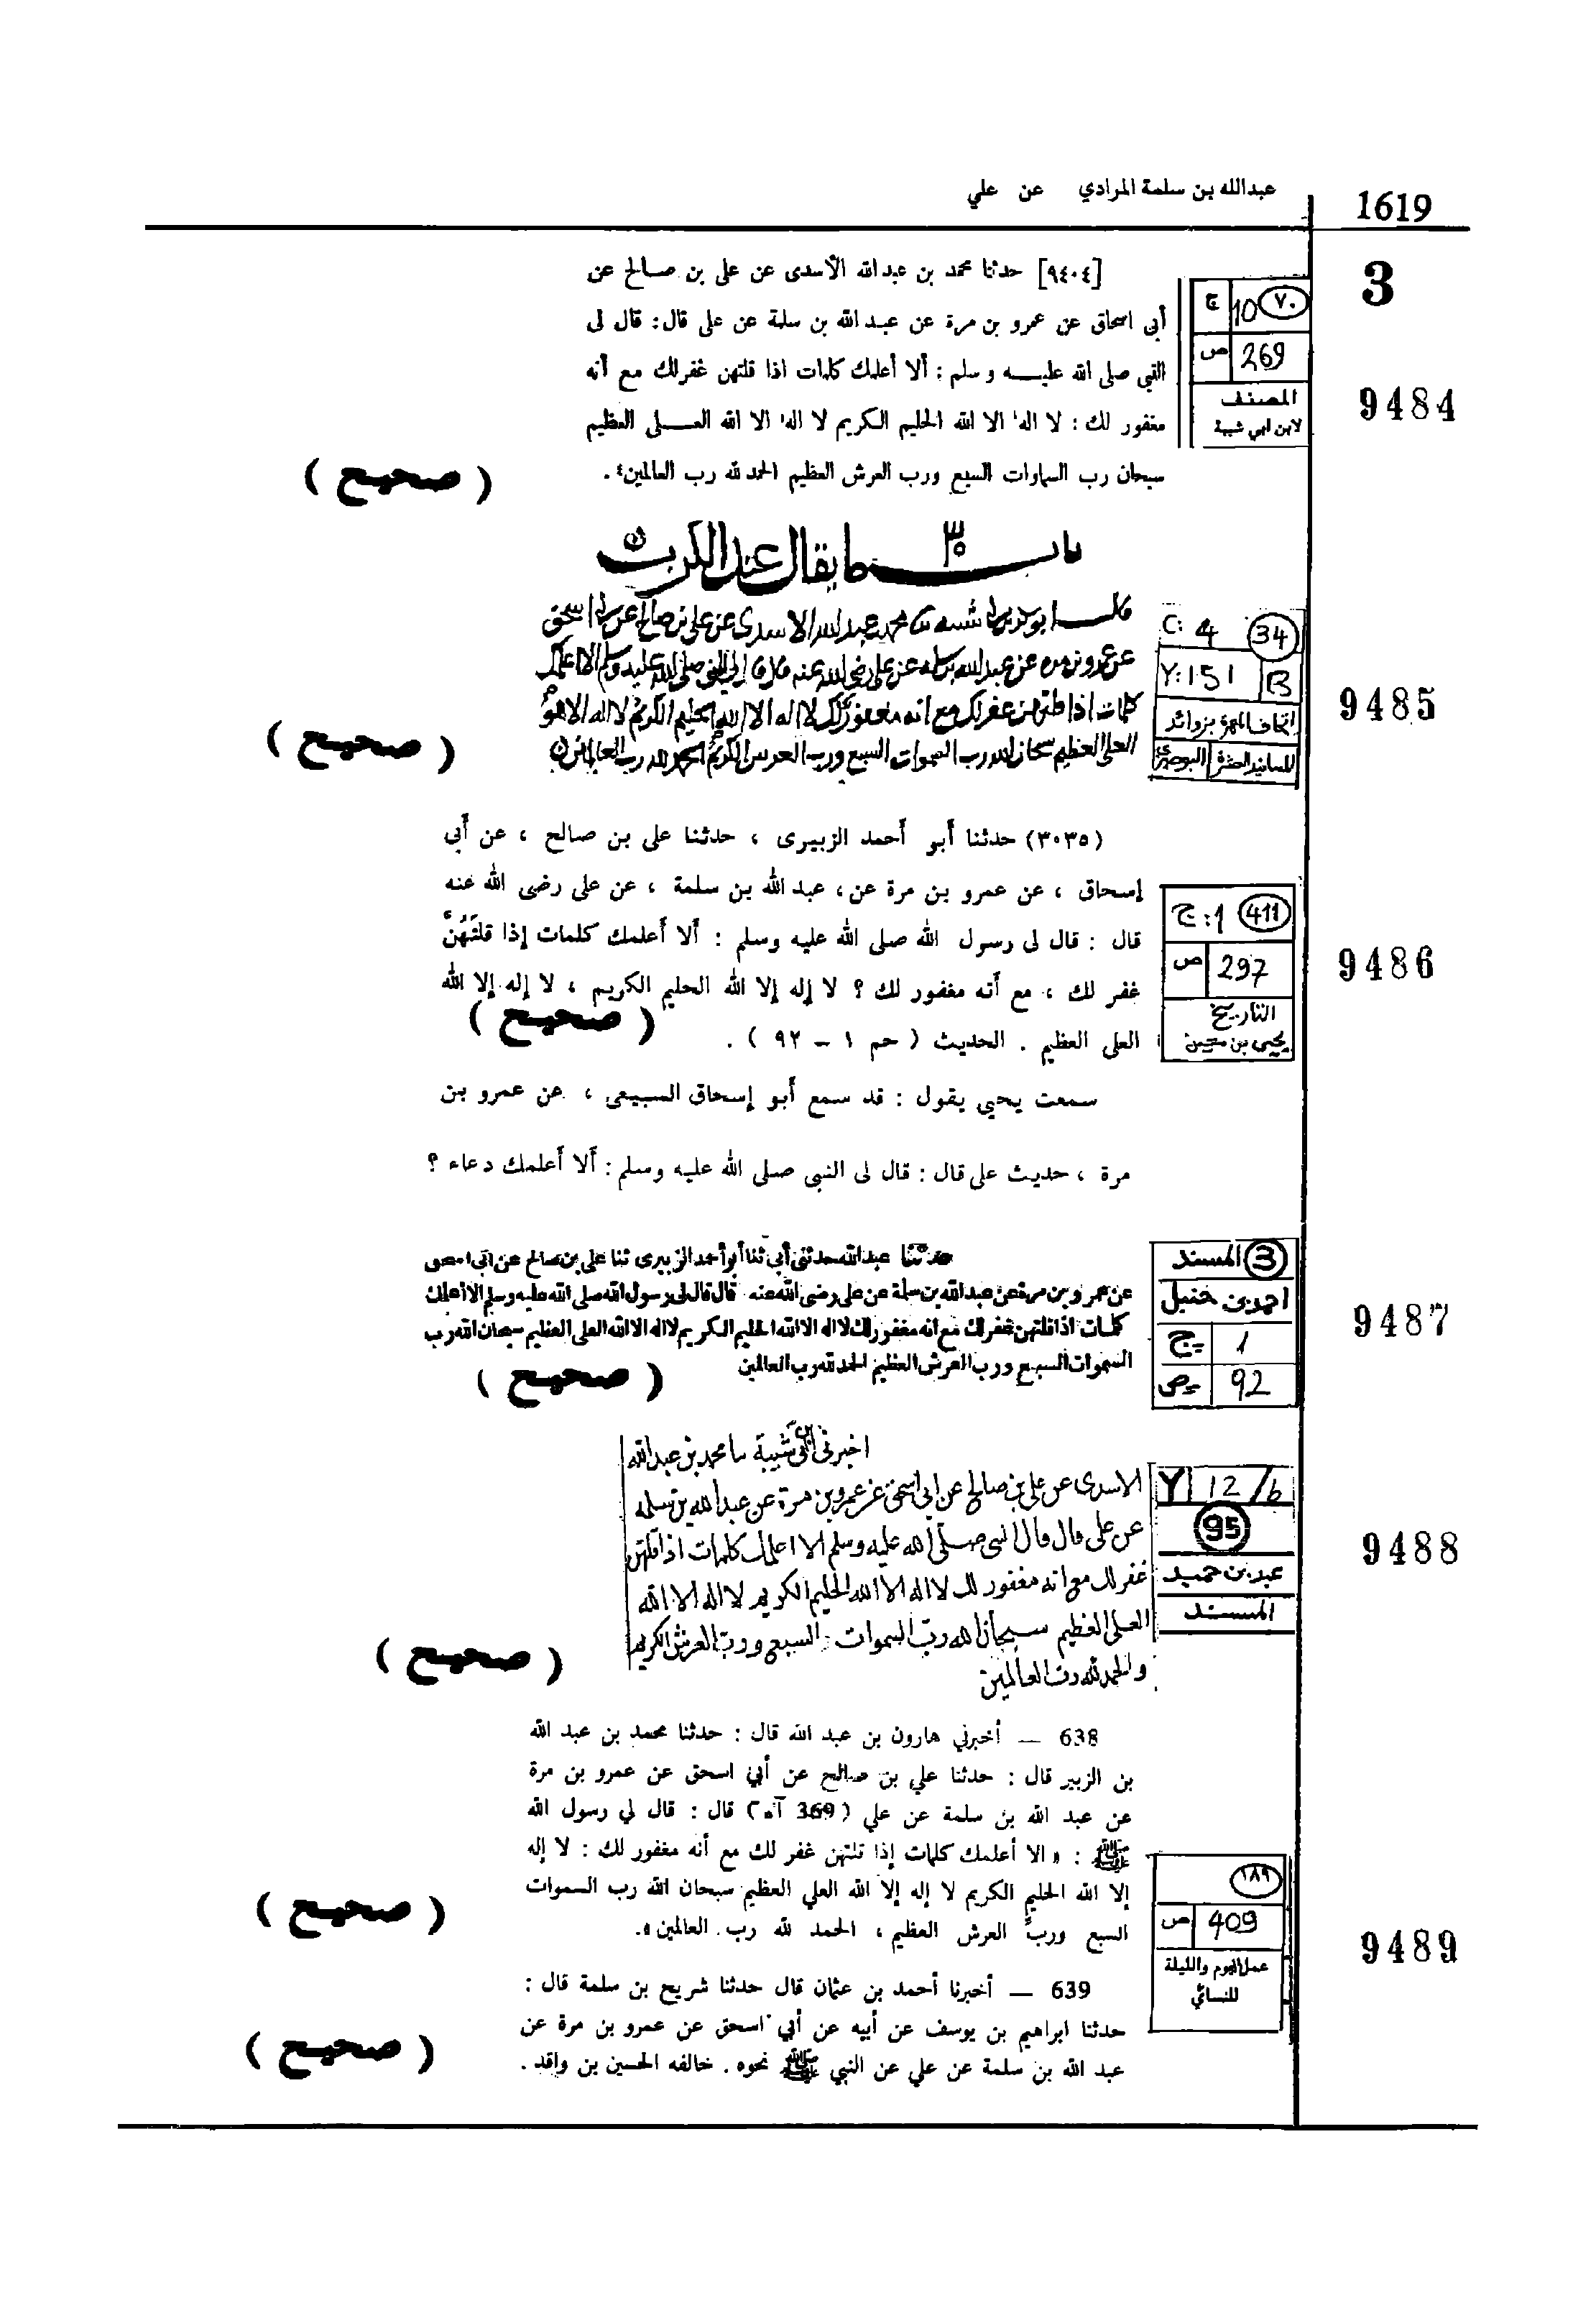 1619
عبدالله بن سلمة المرادي عن علي
3
[٩٤٠٤] حدثنا محمد بن عبد الله الأسدى عن على بن صالح عن
أبى اسحاق عن عمرو بن مرة عن عبد الله بن سلمة عن على قال: قال لى
النبى صلى الله عليه وسلم: ألا أعلمك كلمات اذا قلتهن غفرلك مع أنه
مغفور لك: لا اله الا الله الحليم الكريم لا اله الا الله العلى العظيم
سبحان رب السماوات السبع ورب العرش العظيم الحمد لله رب العالمين٤.
( صحيح )
ج 10 ٧٠
ص 269
المصنف
لابن ابي شيبة
9484
باب ٣٥ ما يقال عند الكرب
قال ابو بكر بن ابى شيبه ثنا محمد بن عبد الله الاسدى عن على بن صالح عن ابى اسحق
عن عمرو بن مره عن عبد الله بن سلمه عن على رضى الله عنه قال قال لى النبى صلى الله عليه وسلم الا اعلمك
كلمات اذا قلتهن غفر لك مع انه مغفور لك لا اله الا الله الحليم الكريم لا اله الا هو
العلى العظيم سبحان الله رب السموات السبع ورب العرش الكريم الحمد لله رب العالمين
( صحيح )
C: 4 34
Y: 151 B
اتحاف المهرة بزوائد
المسانيد العشرة البوصيري
9485
(٣٠٣٥) حدثنا أبو أحمد الزبيرى ، حدثنا على بن صالح ، عن أبى
إسحاق ، عن عمرو بن مرة عن، عبد الله بن سلمة ، عن على رضى الله عنه
قال : قال لى رسول الله صلى الله عليه وسلم : ألا أعلمك كلمات إذا قلتَهُنَّ
غفر لك ، مع أنه مغفور لك ؟ لا إله إلا الله الحليم الكريم ، لا إله إلا الله
العلى العظيم . الحديث ( حم ١ – ٩٢ ) .
( صحيح )
سمعت يحيى يقول : قد سمع أبو إسحاق السبيعى ، عن عمرو بن
مرة ، حديث على قال : قال لى النبى صلى الله عليه وسلم : ألا أعلمك دعاء ؟
ج: 1 411
ص 297
التاريخ
يحيى بن معين
9486
حدثنا عبدالله حدثنى أبى ثنا أبو أحمد الزبيرى ثنا على بن صالح عن ابى اسحق
عن عمرو بن مرة عن عبدالله بن سلمة عن على رضى الله عنه قال قال لى رسول الله صلى الله عليه وسلم الا أعلمك
كلمات اذا قلتهن غفرلك مع انه مغفور لك لا اله الا الله الحليم الكريم لا اله الا الله العلى العظيم سبحان الله رب
السموات السبع ورب العرش العظيم الحمد لله رب العالمين
( صحيح )
3 المسند
احمد بن حنبل
ج 1
ص 92
9487
اخبرنى ابن ابى شيبة سا محمد بن عبد الله
الاسدى عن على بن صالح عن ابى اسحق عن عمرو بن مرة عن عبد الله بن سلمه
عن على قال قال النبى صلى الله عليه وسلم الا اعلمك كلمات اذا قلتهن
غفر لك مع انه مغفور لك لا اله الا الله الحليم الكريم لا اله الا الله
العلى العظيم سبحان الله رب السموات السبع ورب العرش الكريم
والحمد لله رب العالمين
( صحيح )
Y 12/b
95
عبد بن حميد
المسند
9488
638 — أخبرني هارون بن عبد الله قال : حدثنا محمد بن عبد الله
بن الزبير قال : حدثنا علي بن صالح عن أبي اسحق عن عمرو بن مرة
عن عبد الله بن سلمة عن علي (369 آ) قال : قال لي رسول الله
ﷺ : « الا أعلمك كلمات إذا قلتهن غفر لك مع أنه مغفور لك : لا إله
إلا الله الحليم الكريم لا إله إلا الله العلي العظيم سبحان الله رب السموات
السبع وربّ العرش العظيم ، الحمد لله رب العالمين ».
( صحيح )
639 — أخبرنا أحمد بن عثمان قال حدثنا شريح بن سلمة قال :
حدثنا ابراهيم بن يوسف عن أبيه عن أبي اسحق عن عمرو بن مرة عن
عبد الله بن سلمة عن علي عن النبي ﷺ نحوه . خالفه الحسين بن واقد .
( صحيح )
١٨٩
ص 409
عمل اليوم والليلة
للنسائي
9489